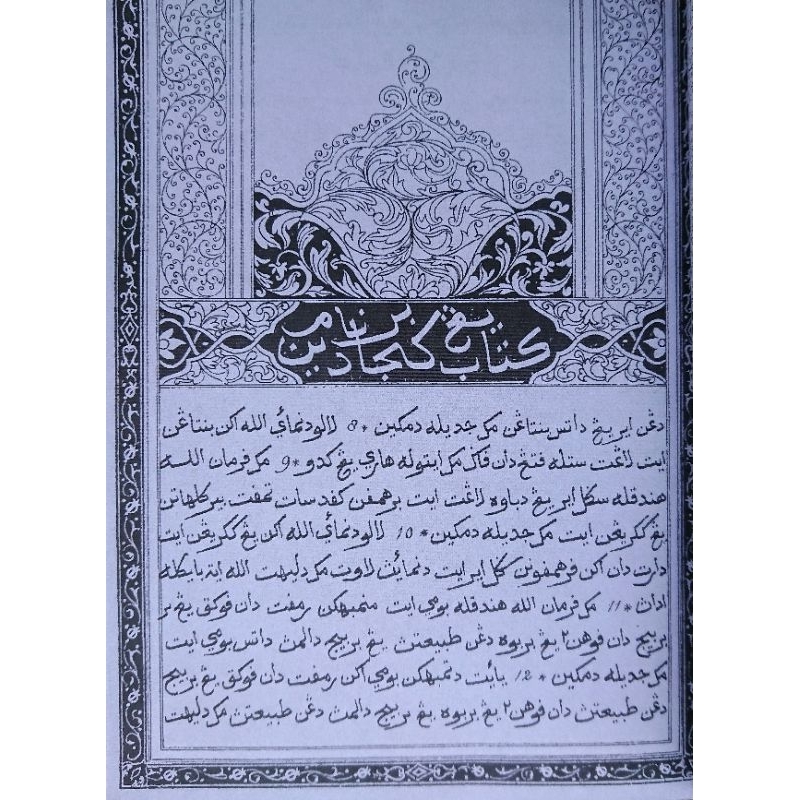 كتاب يڠ برنام كنجادين
دڠن اير يڠ داتس بنتاڠن مك جديله دمكين * 8 لالو دنمائي الله اكن بنتاڠن
ايت لاڠت ستله فتڠ دان فاݢ مك ايتوله هاري يڠ كدو * 9 مك فرمان الله
هندقله سݢل اير يڠ دباوه لاڠت ايت برهمفن كفد سات تمفت سركلهاتن
يڠ ككريڠن ايت مك جديله دمكين * 10 لالو دنمائي الله اكن يڠ ككريڠن ايت
دارت دان اكن فرهمفونن سݢل اير ايت دنمائيڽ لاوت مك دليهت الله ايت بايكله
ادان * 11 مك فرمان الله هندقله بومي ايت منمبهكن رمفت دان فوكق يڠ بر
بريجي دان فوهن٢ يڠ بربوه دڠن طبيعتڽ يڠ بريجي دالمڽ داتس بومي ايت
مك جديله دمكين * 12 يائيت دتمبهكن بومي اكن رمفت دان فوكق يڠ بريجي
دڠن طبيعتڽ دان فوهن٢ يڠ بربوه يڠ بريجي دالمڽ دڠن طبيعتڽ مك دليهت